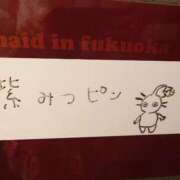 maid in fukuoka
紫 みつピン